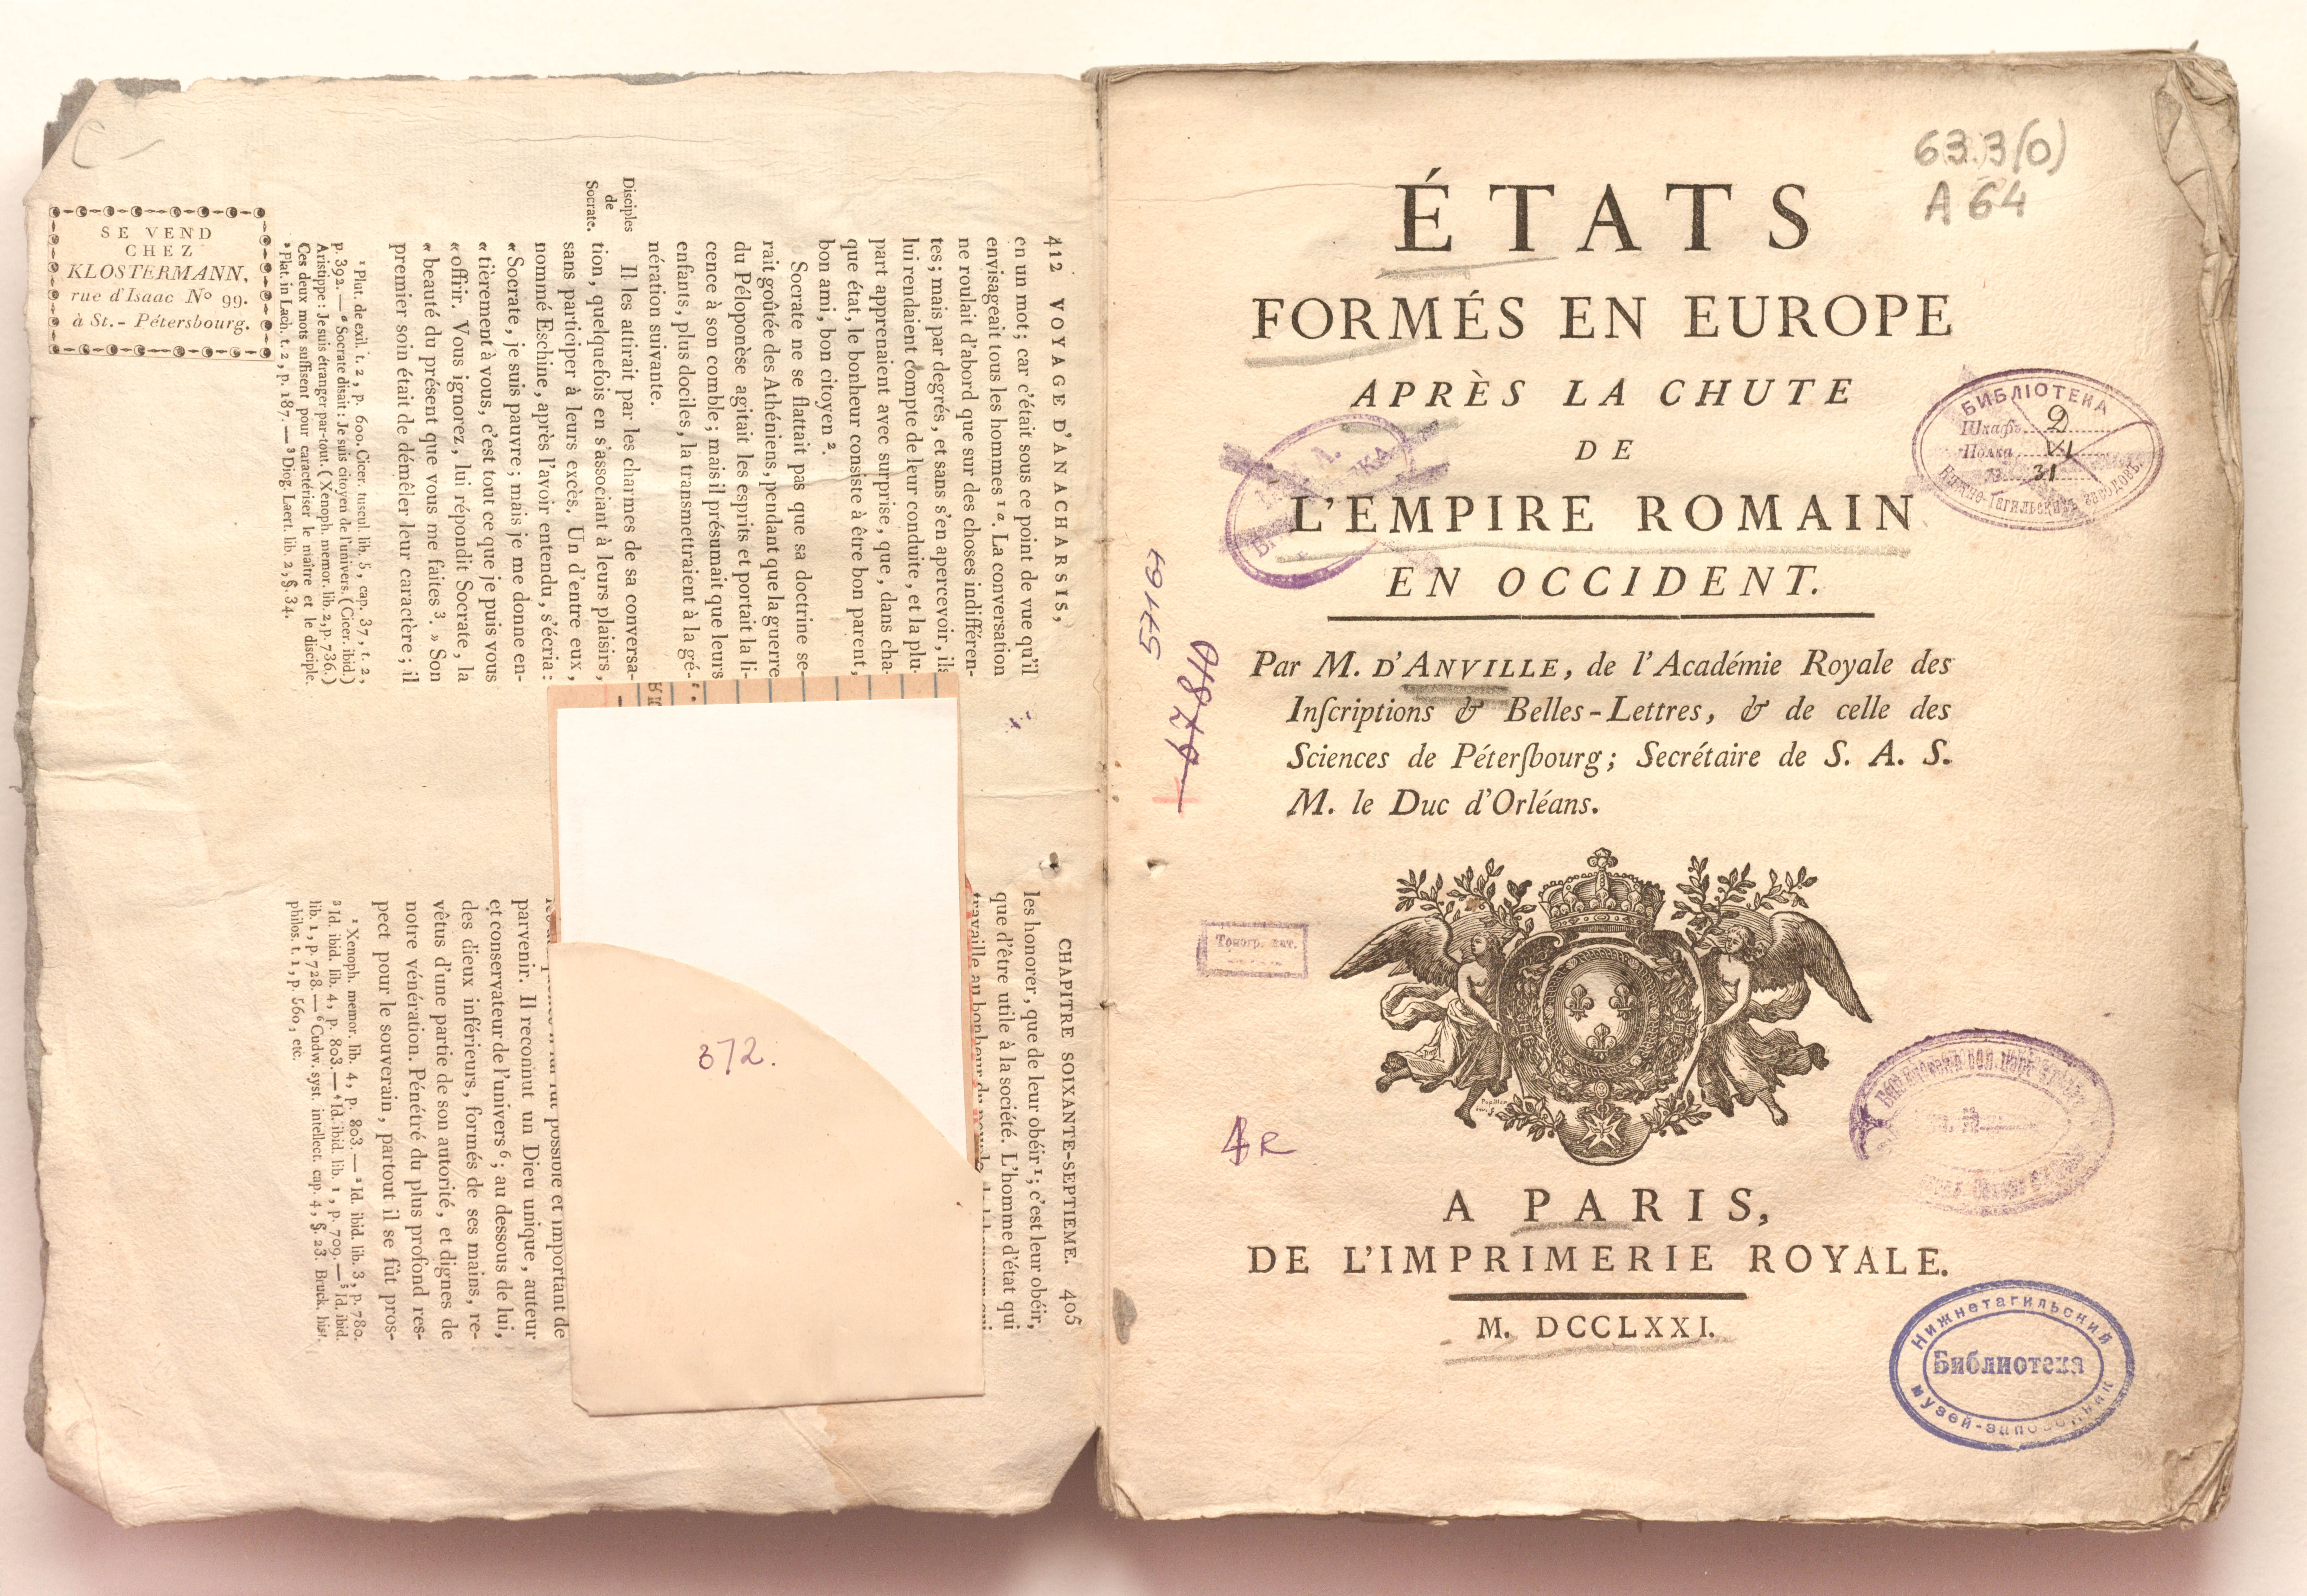 SE VEND
CHEZ
KLOSTERMANN,
rue d'Isaac Nº 99.
à St.- Pétersbourg.
412 VOYAGE D'ANACHARSIS,
en un mot; car c'était sous ce point de vue qu'il
envisageait tous les hommes ¹ ᵃ. La conversation
ne roulait d'abord que sur des choses indifféren-
tes; mais par degrés, et sans s'en apercevoir, ils
lui rendaient compte de leur conduite, et la plu-
part apprenaient avec surprise, que, dans cha-
que état, le bonheur consiste à être bon parent,
bon ami, bon citoyen ².
Socrate ne se flattait pas que sa doctrine se-
rait goûtée des Athéniens, pendant que la guerre
du Péloponèse agitait les esprits et portait la li-
cence à son comble; mais il présumait que leurs
enfants, plus dociles, la transmettraient à la gé-
nération suivante.
Disciples
de
Socrate.
Il les attirait par les charmes de sa conversa-
tion, quelquefois en s'associant à leurs plaisirs,
sans participer à leurs excès. Un d'entre eux,
nommé Eschine, après l'avoir entendu, s'écria:
« Socrate, je suis pauvre; mais je me donne en-
« tièrement à vous, c'est tout ce que je puis vous
« offrir. Vous ignorez, lui répondit Socrate, la
« beauté du présent que vous me faites ³. » Son
premier soin était de démêler leur caractère; il
¹ Plut. de exil. t. 2, p. 600. Cicer. tuscul. lib. 5, cap. 37, t. 2,
p. 392. — ᵃ Socrate disait: Je suis citoyen de l'univers. (Cicer. ibid.)
Aristippe: Je suis étranger par-tout. (Xenoph. memor. lib. 2, p. 736.)
Ces deux mots suffisent pour caractériser le maître et le disciple.
² Plat. in Lach. t. 2, p. 187. — ³ Diog. Laert. lib. 2, §. 34.
CHAPITRE SOIXANTE-SEPTIEME. 405
les honorer, que de leur obéir ¹; c'est leur obéir,
que d'être utile à la société. L'homme d'état qui
travaille au bonheur du peuple
possible et important de
parvenir. Il reconnut un Dieu unique, auteur
et conservateur de l'univers ⁶; au dessous de lui,
des dieux inférieurs, formés de ses mains, re-
vêtus d'une partie de son autorité, et dignes de
notre vénération. Pénétré du plus profond res-
pect pour le souverain, partout il se fût pros-
¹ Xenoph. memor. lib. 4, p. 803. — ² Id. ibid. lib. 3, p. 780.
³ Id. ibid. lib. 4, p. 803. — ⁴ Id. ibid. lib. 1, p. 709. — ⁵ Id. ibid.
lib. 1, p. 728. — ⁶ Cudw. syst. intellect. cap. 4, §. 23. Bruck. hist.
philos. t. 1, p. 560, etc.
372.
63.3(0)
A 64
ÉTATS
FORMÉS EN EUROPE
APRÈS LA CHUTE
DE
L'EMPIRE ROMAIN
EN OCCIDENT.
БИБЛІОТЕКА
Шкафъ D
Полка VI
31
Нижно-Тагильскихъ заводовъ
57169
Par M. D'ANVILLE, de l'Académie Royale des
Inſcriptions & Belles-Lettres, & de celle des
Sciences de Péterſbourg; Secrétaire de S. A. S.
M. le Duc d'Orléans.
A PARIS,
DE L'IMPRIMERIE ROYALE.
M. DCCLXXI.
Нижнетагильский
Библиотека
музей-заповедник